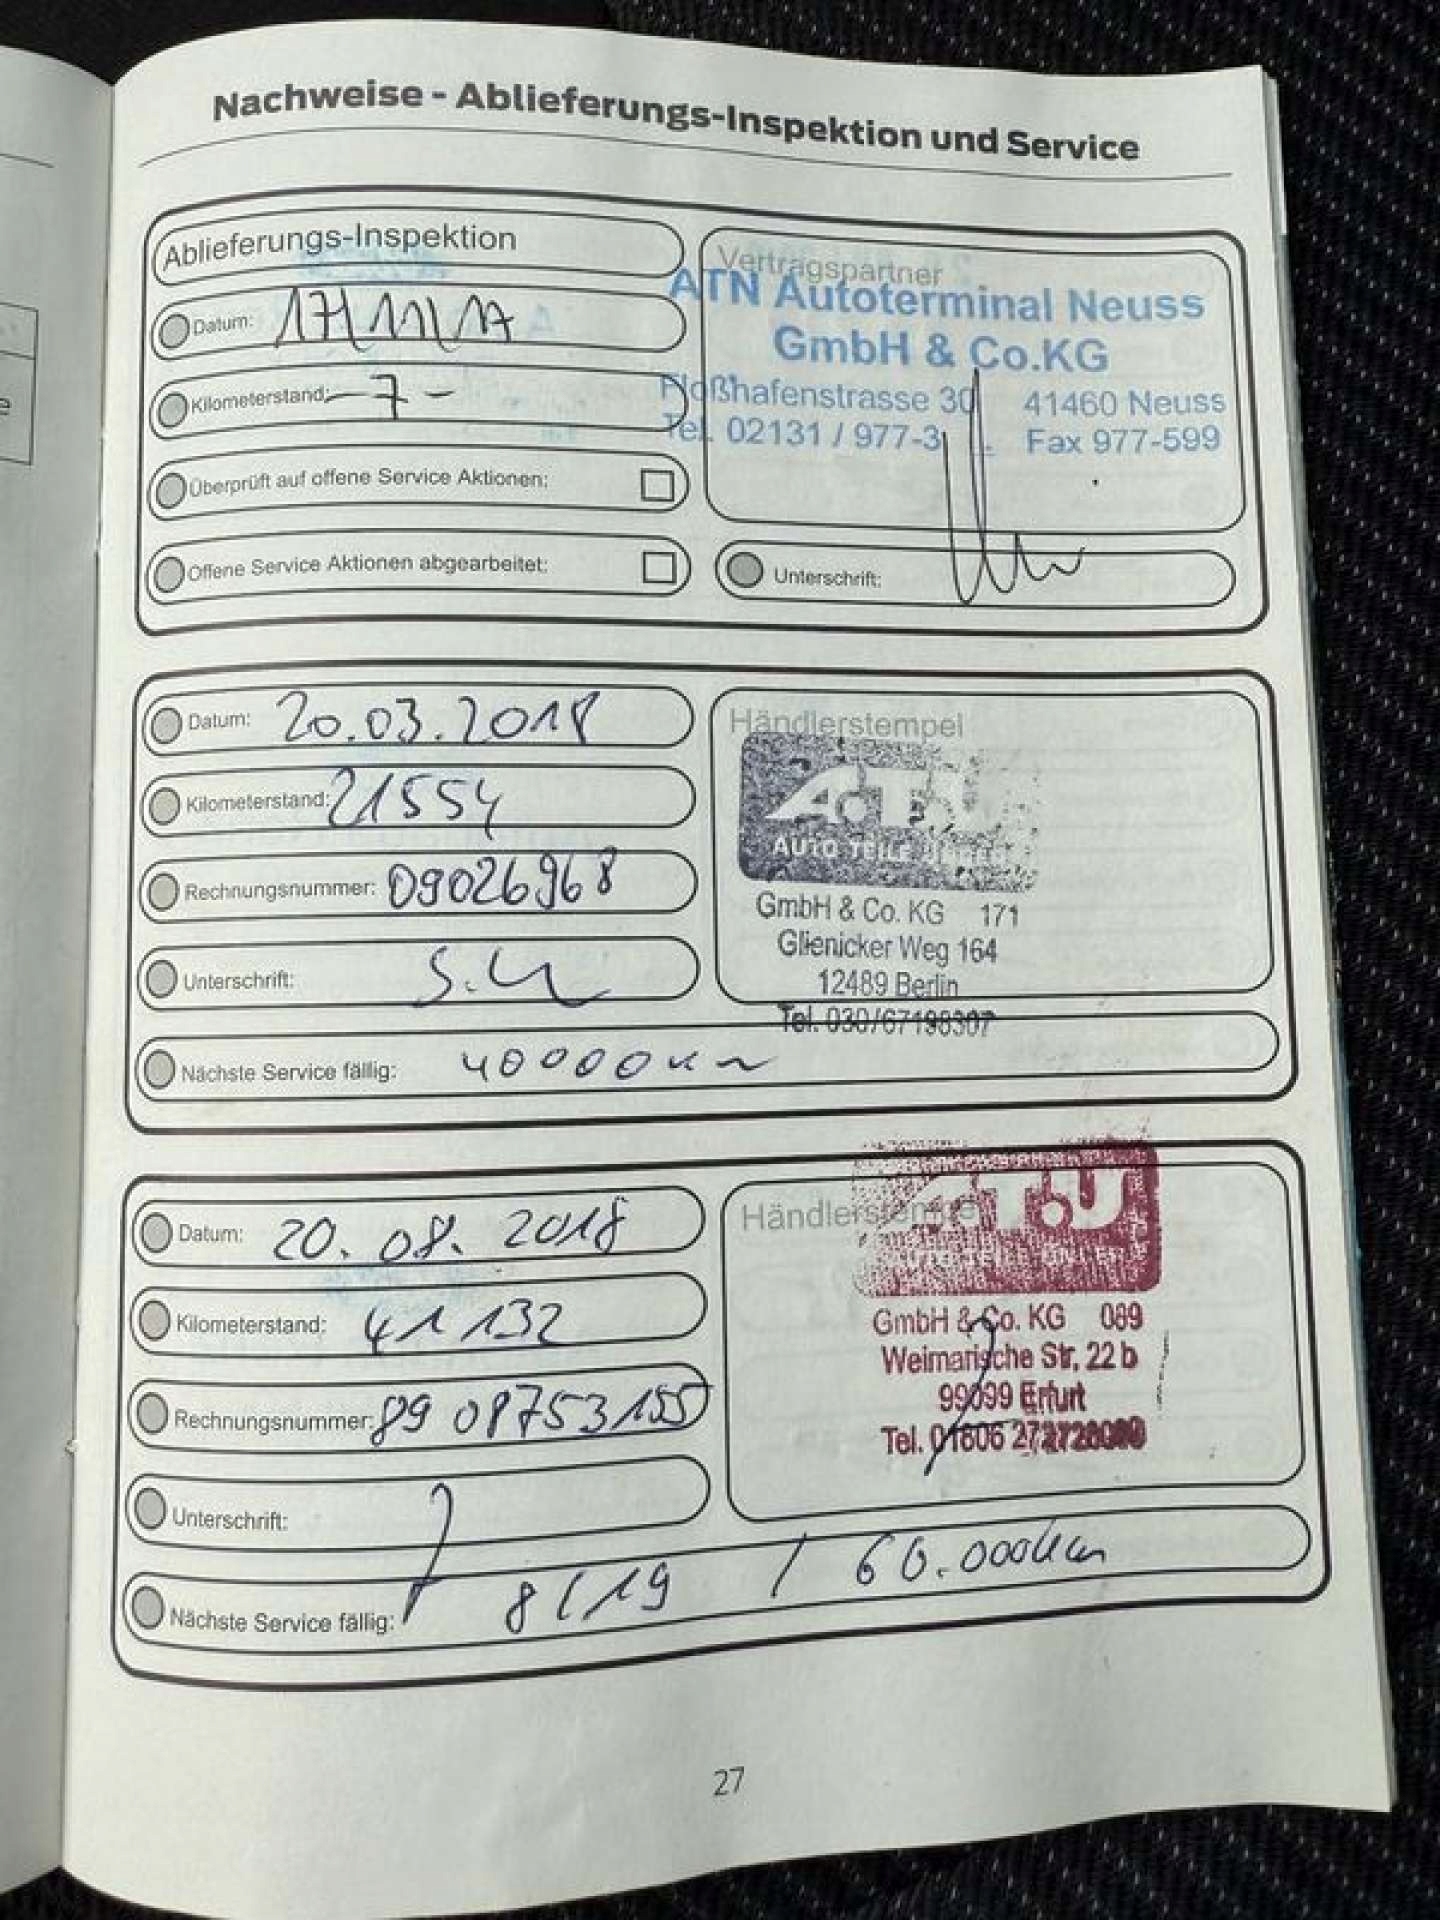 Nachweise - Ablieferungs-Inspektion und Service
Ablieferungs-Inspektion
Datum: 17/11/17
Kilometerstand: - 7 -
Überprüft auf offene Service Aktionen:
Offene Service Aktionen abgearbeitet:
Vertragspartner
ATN Autoterminal Neuss
GmbH & Co.KG
Floßhafenstrasse 30 41460 Neuss
Tel. 02131 / 977-3 Fax 977-599
Unterschrift:
Datum: 20.03.2018
Kilometerstand: 21554
Rechnungsnummer: 09026968
Unterschrift:
Händlerstempel
A.T.U
AUTO TEILE UNGER
GmbH & Co. KG 171
Glienicker Weg 164
12489 Berlin
Tel. 030/67198307
Nächste Service fällig: 40000km
Datum: 20.08.2018
Kilometerstand: 41132
Rechnungsnummer: 8908753155
Unterschrift:
Händlerstempel
A.T.U
AUTO TEILE UNGER
GmbH & Co. KG 089
Weimarische Str. 22 b
99099 Erfurt
Tel. 01806
Nächste Service fällig: 8/19 / 60.000km
27